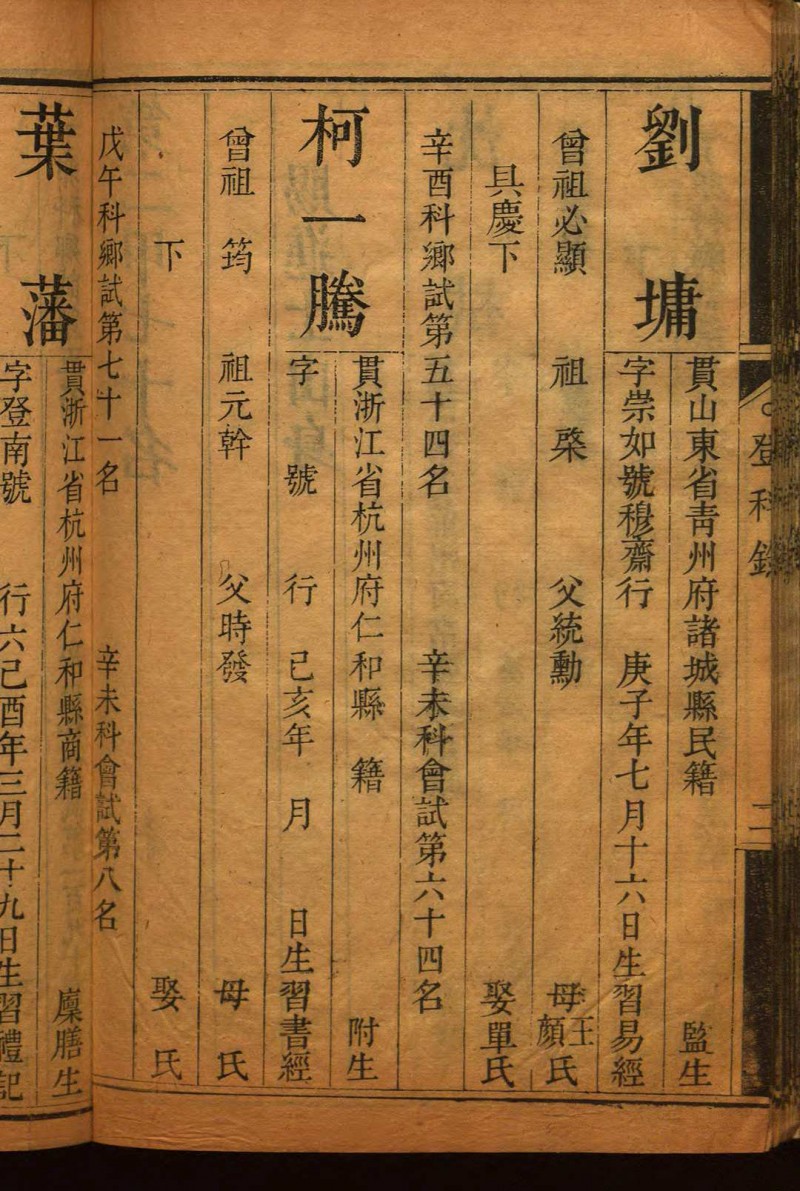 登科錄
二
劉墉
貫山東省青州府諸城縣民籍 監生
字崇如號穆齋行 庚子年七月十六日生習易經
曾祖必顯 祖棨 父統勳 母王顏氏
具慶下 娶單氏
辛酉科鄉試第五十四名 辛未科會試第六十四名
柯一騰
貫浙江省杭州府仁和縣 籍 附生
字 號 行 己亥年 月 日生習書經
曾祖 筠 祖元幹 父時發 母 氏
下 娶 氏
戊午科鄉試第七十一名 辛未科會試第八名
葉藩
貫浙江省杭州府仁和縣商籍 廩膳生
字登南號 行六己酉年三月二十九日生習禮記